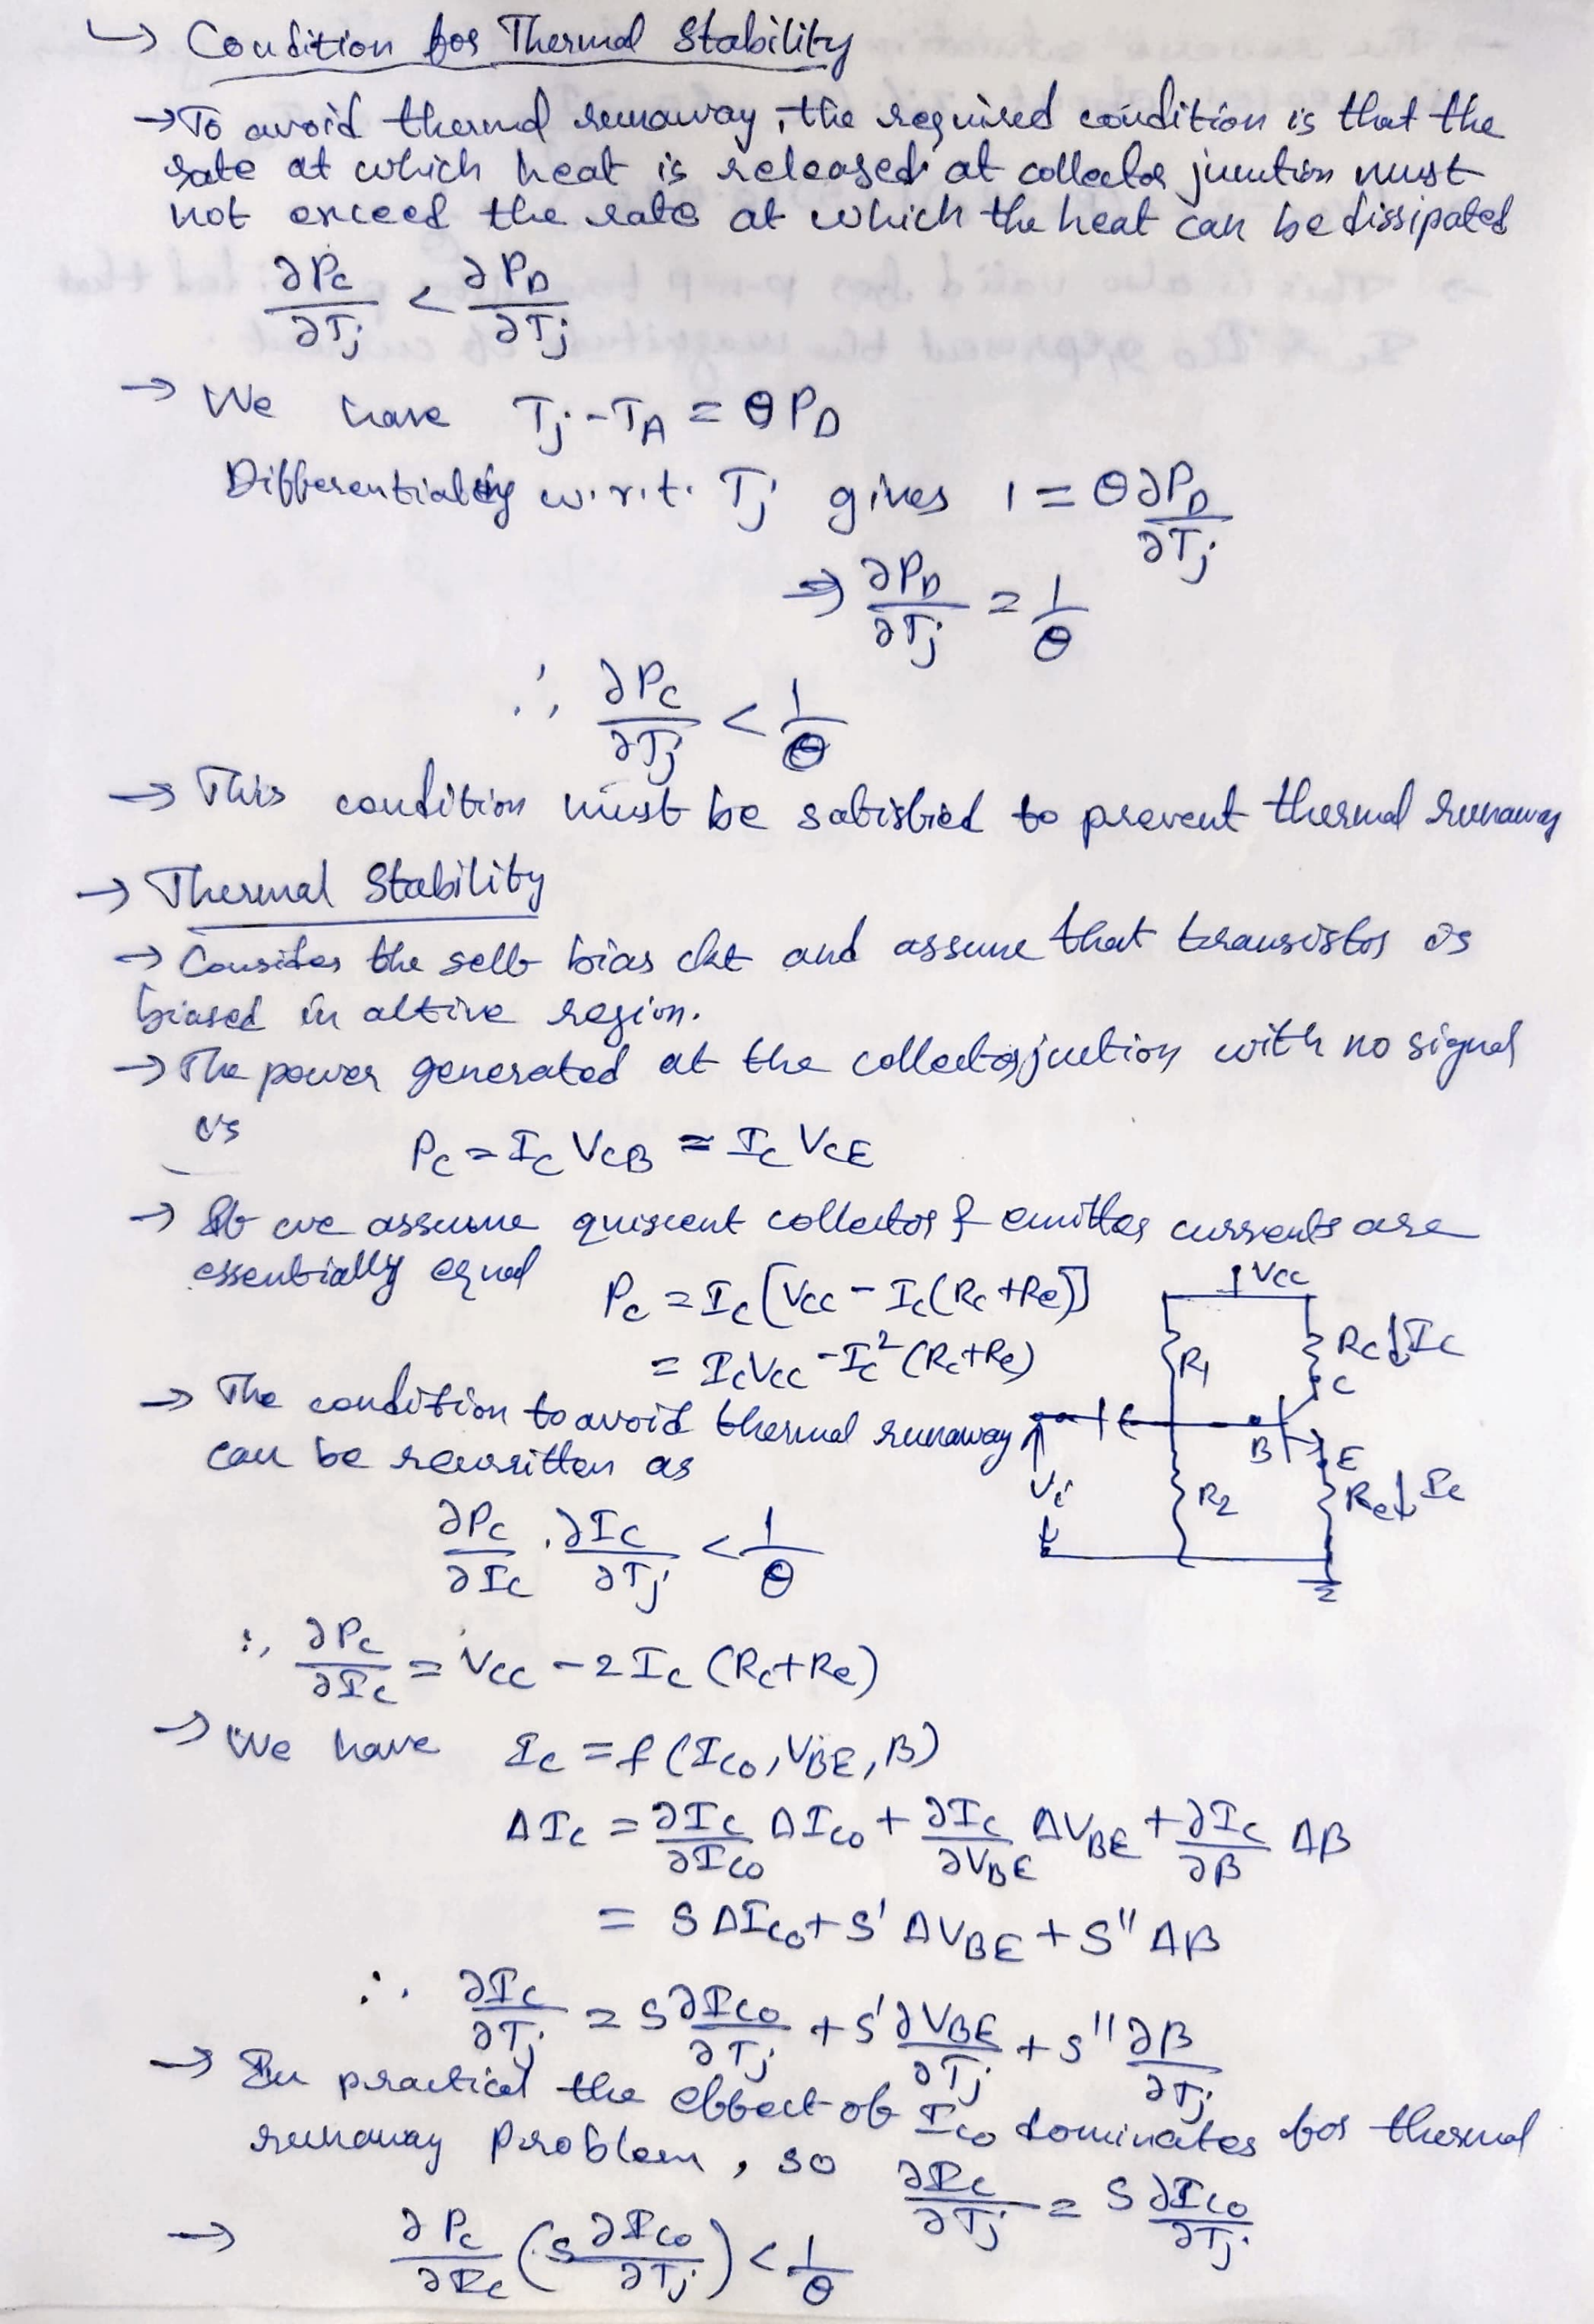 ↳ Condition for Thermal Stability
→ To avoid thermal runaway, the required condition is that the
rate at which heat is released at collector junction must
not exceed the rate at which the heat can be dissipated
∂Pc/∂Tj < ∂PD/∂Tj
→ We have Tj - TA = θ PD
Differentiating w.r.t. Tj gives 1 = θ ∂PD/∂Tj
⇒ ∂PD/∂Tj = 1/θ
∴ ∂Pc/∂Tj < 1/θ
→ This condition must be satisfied to prevent thermal runaway
→ Thermal Stability
→ Consider the self bias ckt and assume that transistor is
biased in active region.
→ The power generated at the collector junction with no signal
is Pc = Ic VCB ≃ Ic VCE
→ If we assume quiscent collector & emitter currents are
essentially equal
Pc = Ic [Vcc - Ic (Rc + Re)]
= Ic Vcc - Ic² (Rc + Re)
Vcc
R1
Rc ↓ Ic
C
B
E
R2
Re ↓ Ie
Vi
→ The condition to avoid thermal runaway
can be rewritten as
∂Pc/∂Ic . ∂Ic/∂Tj < 1/θ
∴ ∂Pc/∂Ic = Vcc - 2 Ic (Rc + Re)
→ We have Ic = f (Ico, VBE, β)
ΔIc = ∂Ic/∂Ico ΔIco + ∂Ic/∂VBE ΔVBE + ∂Ic/∂β Δβ
= S ΔIco + S' ΔVBE + S'' Δβ
∴ ∂Ic/∂Tj = S ∂Ico/∂Tj + S' ∂VBE/∂Tj + S'' ∂β/∂Tj
→ In practical the effect of Ico dominates for thermal
runaway problem, so ∂Ic/∂Tj = S ∂Ico/∂Tj
→ ∂Pc/∂Ic (S ∂Ico/∂Tj) < 1/θ